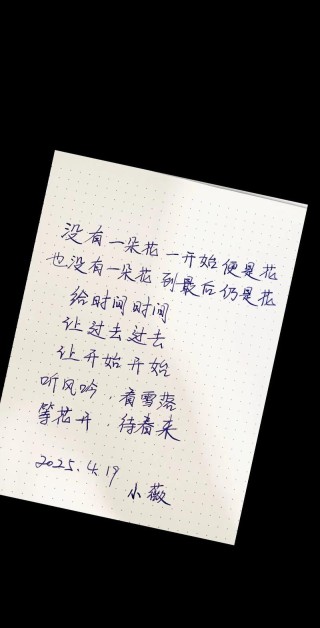 没有一朵花 一开始便是花
也没有一朵花 到最后仍是花
给时间时间
让过去过去
让开始开始
听风吟，看雪落
等花开，待春来
2025.4.19
小薇